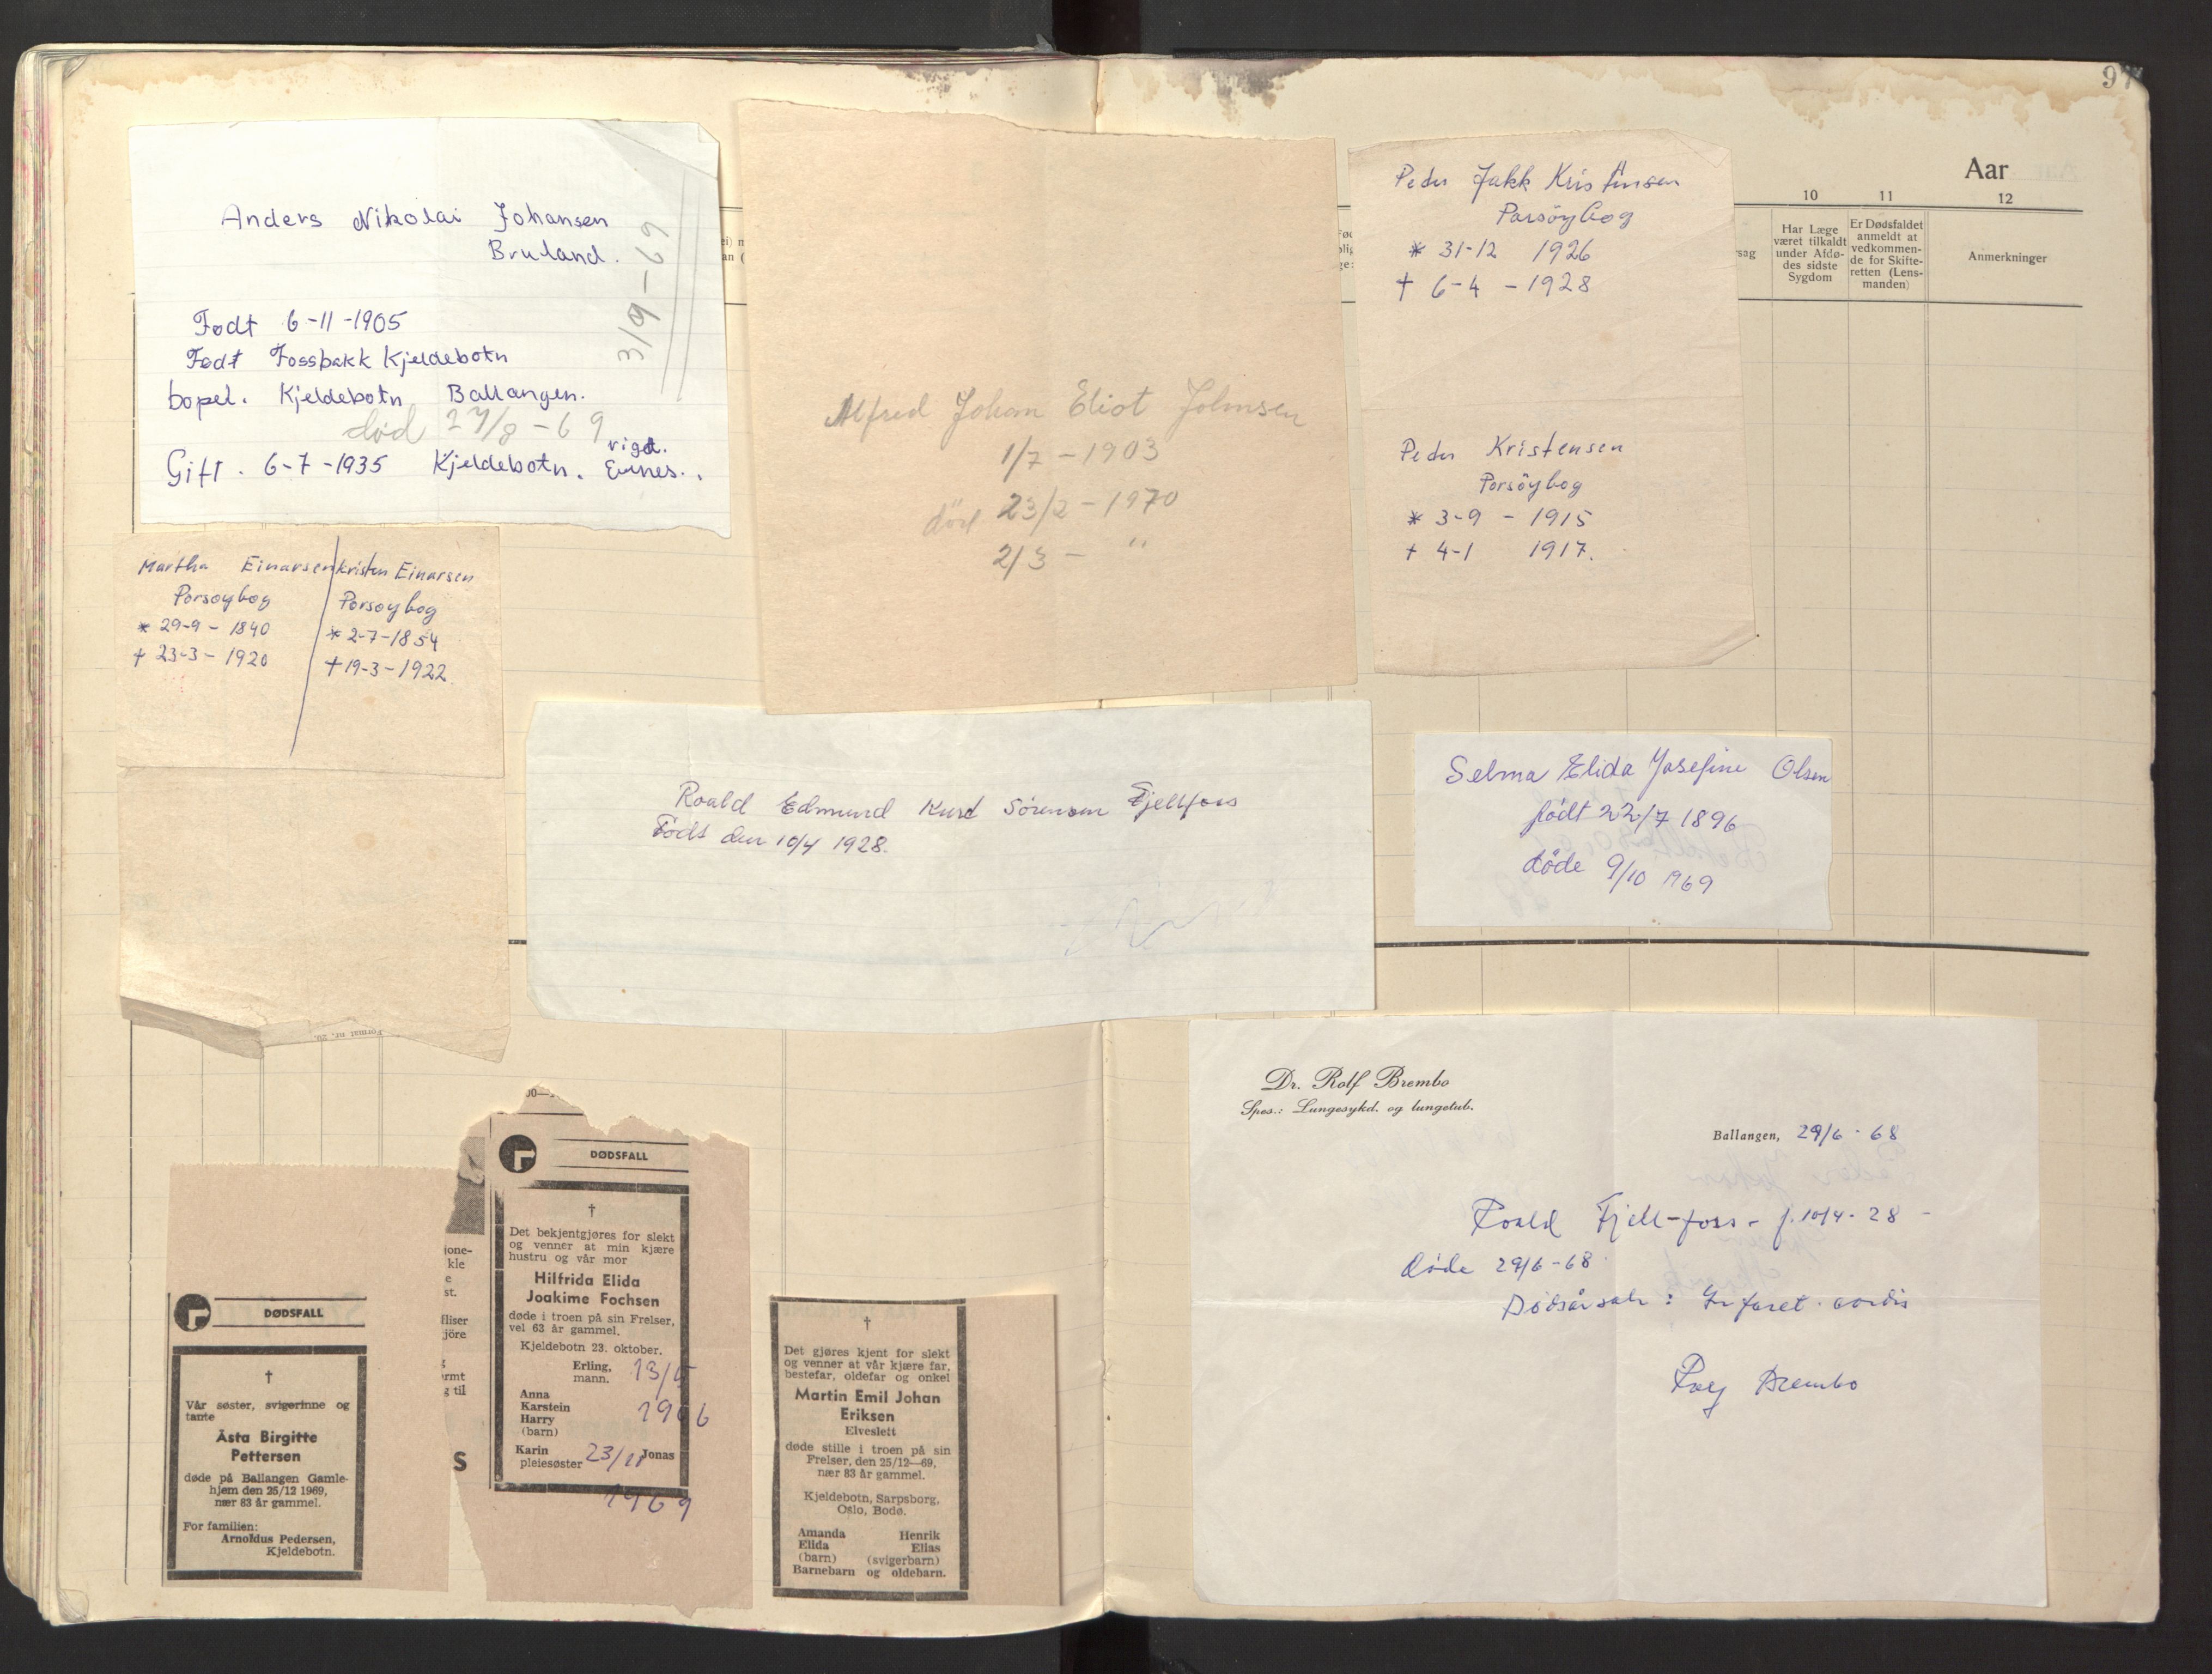 97
Aar
10
11
12
Har Læge
været tilkaldt
under Afdø-
des sidste
Sygdom
Er Dødsfaldet
anmeldt at
vedkommen-
de for Skifte-
retten (Lens-
manden)
Anmerkninger
Anders Nikolai Johansen
Bruland.
3/9-69
Født 6-11-1905
Født Fossbakk Kjeldebotn
bopel. Kjeldebotn Ballangen.
død 27/8-69
vigd.
Gift. 6-7-1935 Kjeldebotn. Evnes.
Martha Einarsen
Porsøybog
* 29-9-1840
+ 23-3-1920
Kristen Einarsen
Porsøybog
* 2-7-1854
+ 19-3-1922
Format nr. 20.
Alfred Johan Eliot Johnsen
1/7-1903
död 23/2-1970
2/3 - "
Peder Jakk Kristensen
Porsöybog
* 31-12 1926
+ 6-4-1928
Peder Kristensen
Porsöybog
* 3-9-1915
+ 4-1 1917.
Roald Edmund Kurt Sørensen Fjellfoss
Født den 10/4 1928.
Selma Elida Josefine Olsen
født 22/7 1896
døde 9/10 1969
Dr. Rolf Brembo
Spes.: Lungesykd. og lungetub.
Ballangen, 29/6-68
Roald Fjell-foss - f. 10/4-28 -
døde 29/6-68
Dødsårsak: Infarct. cordis
Rolf Brembo
DØDSFALL
†
Vår søster, svigerinne og
tante
Åsta Birgitte
Pettersen
døde på Ballangen Gamle-
hjem den 25/12 1969,
nær 83 år gammel.
For familien:
Arnoldus Pedersen,
Kjeldebotn.
DØDSFALL
†
Det bekjentgjøres for slekt
og venner at min kjære
hustru og vår mor
Hilfrida Elida
Joakime Fochsen
døde i troen på sin Frelser,
vel 63 år gammel.
Kjeldebotn 23. oktober.
Erling,
mann.
13/5
Anna
Karstein
Harry
(barn)
1906
Karin
pleiesøster
Jonas
1969
†
Det gjøres kjent for slekt
og venner at vår kjære far,
bestefar, oldefar og onkel
Martin Emil Johan
Eriksen
Elveslett
døde stille i troen på sin
Frelser, den 25/12—69,
nær 83 år gammel.
Kjeldebotn, Sarpsborg,
Oslo, Bodø.
Amanda Henrik
Elida Elias
(barn) (svigerbarn)
Barnebarn og oldebarn.